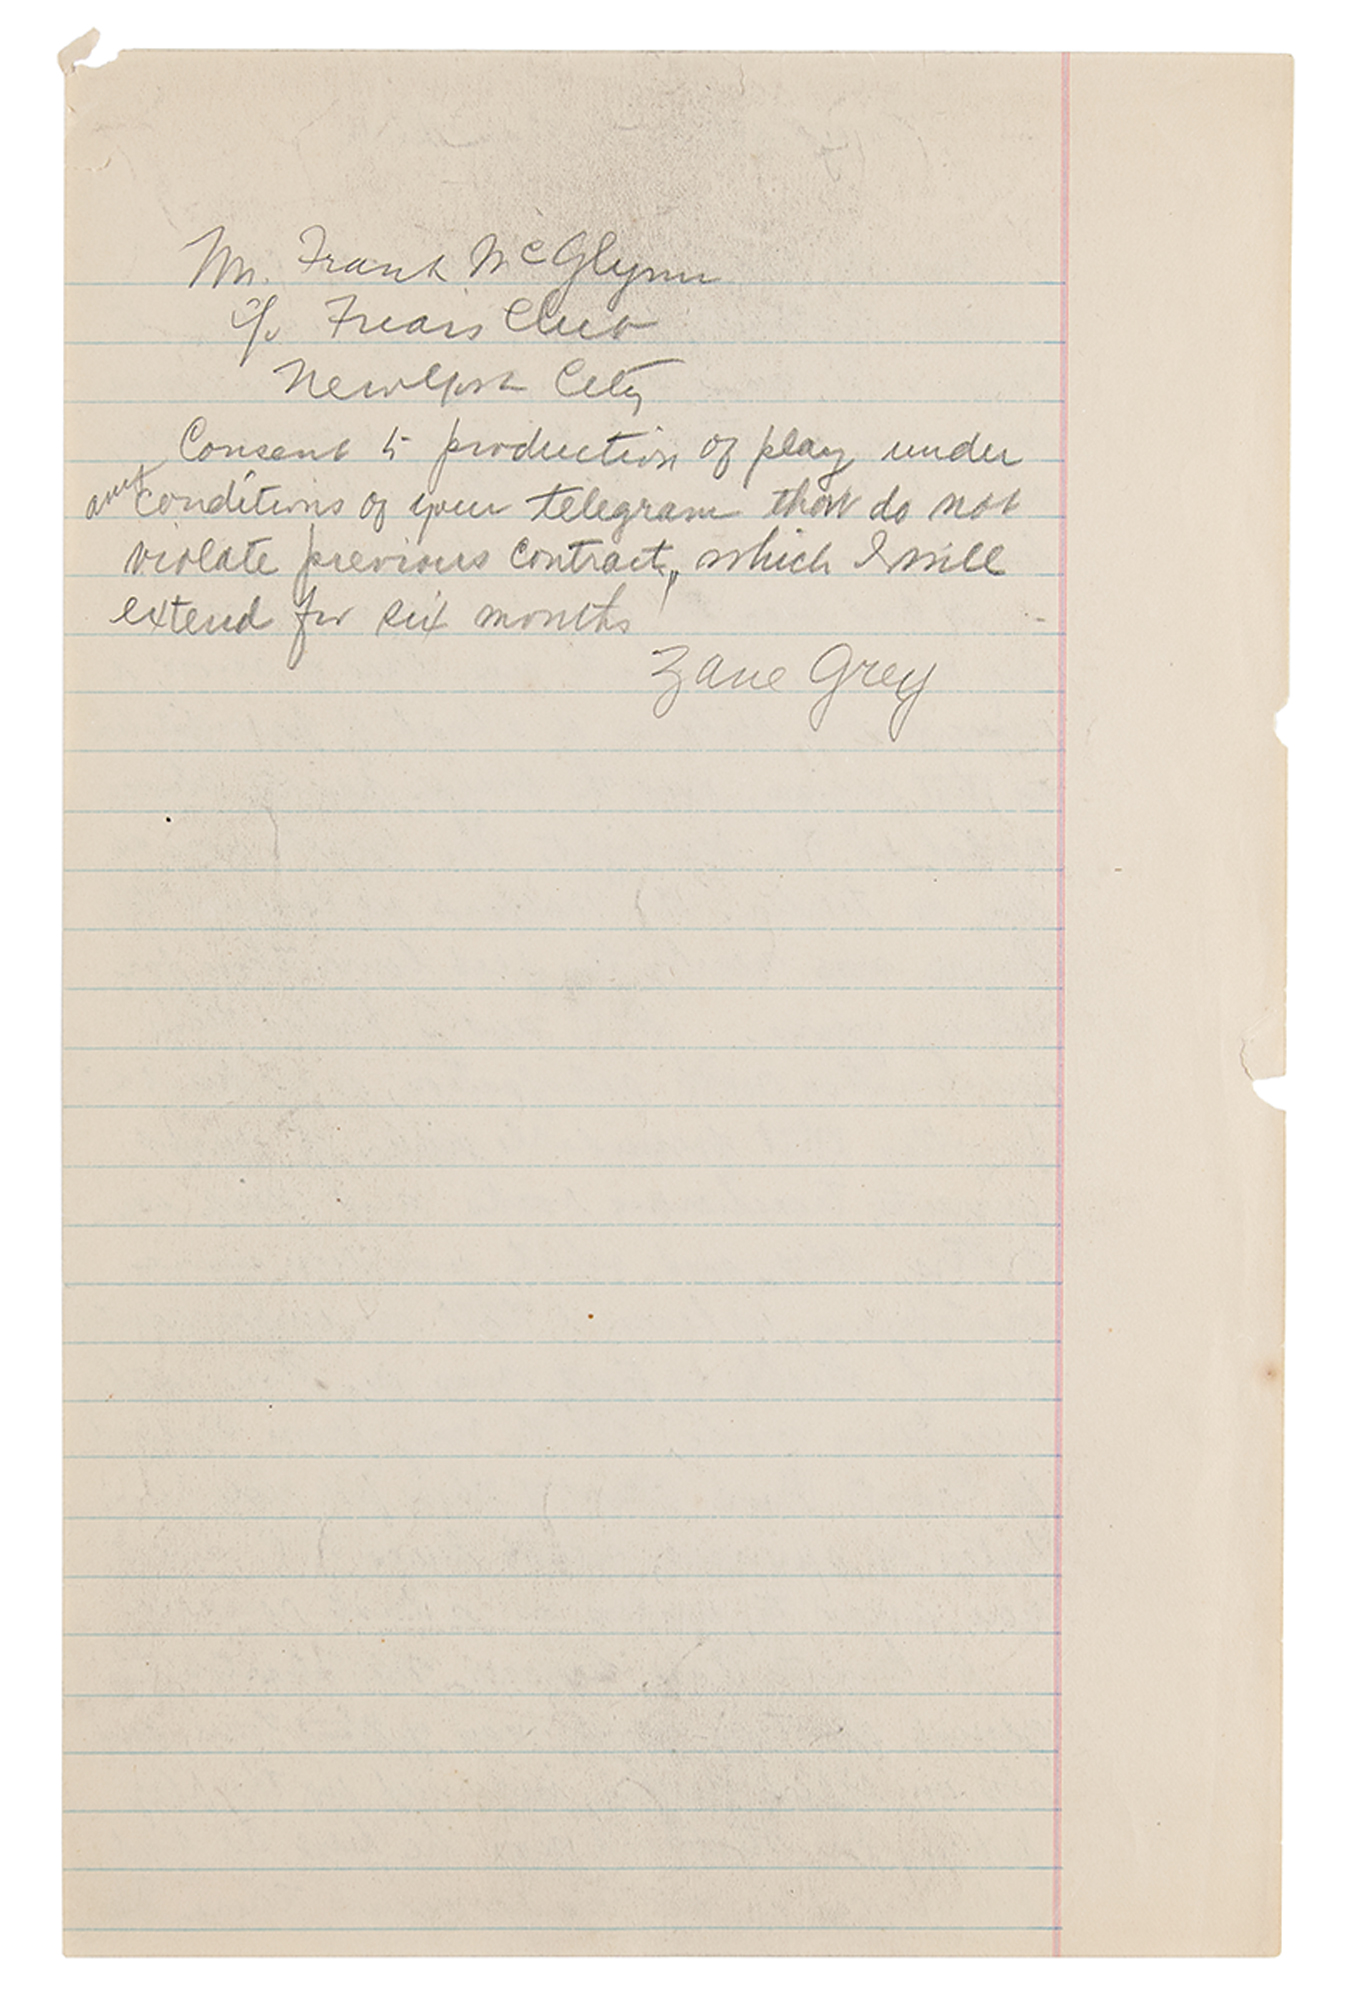 Mr. Frank McGlynn
c/o Friars Club
New York City
Consent to production of play under
any conditions of your telegram that do not
violate previous contract, which I will
extend for six months
Zane Grey